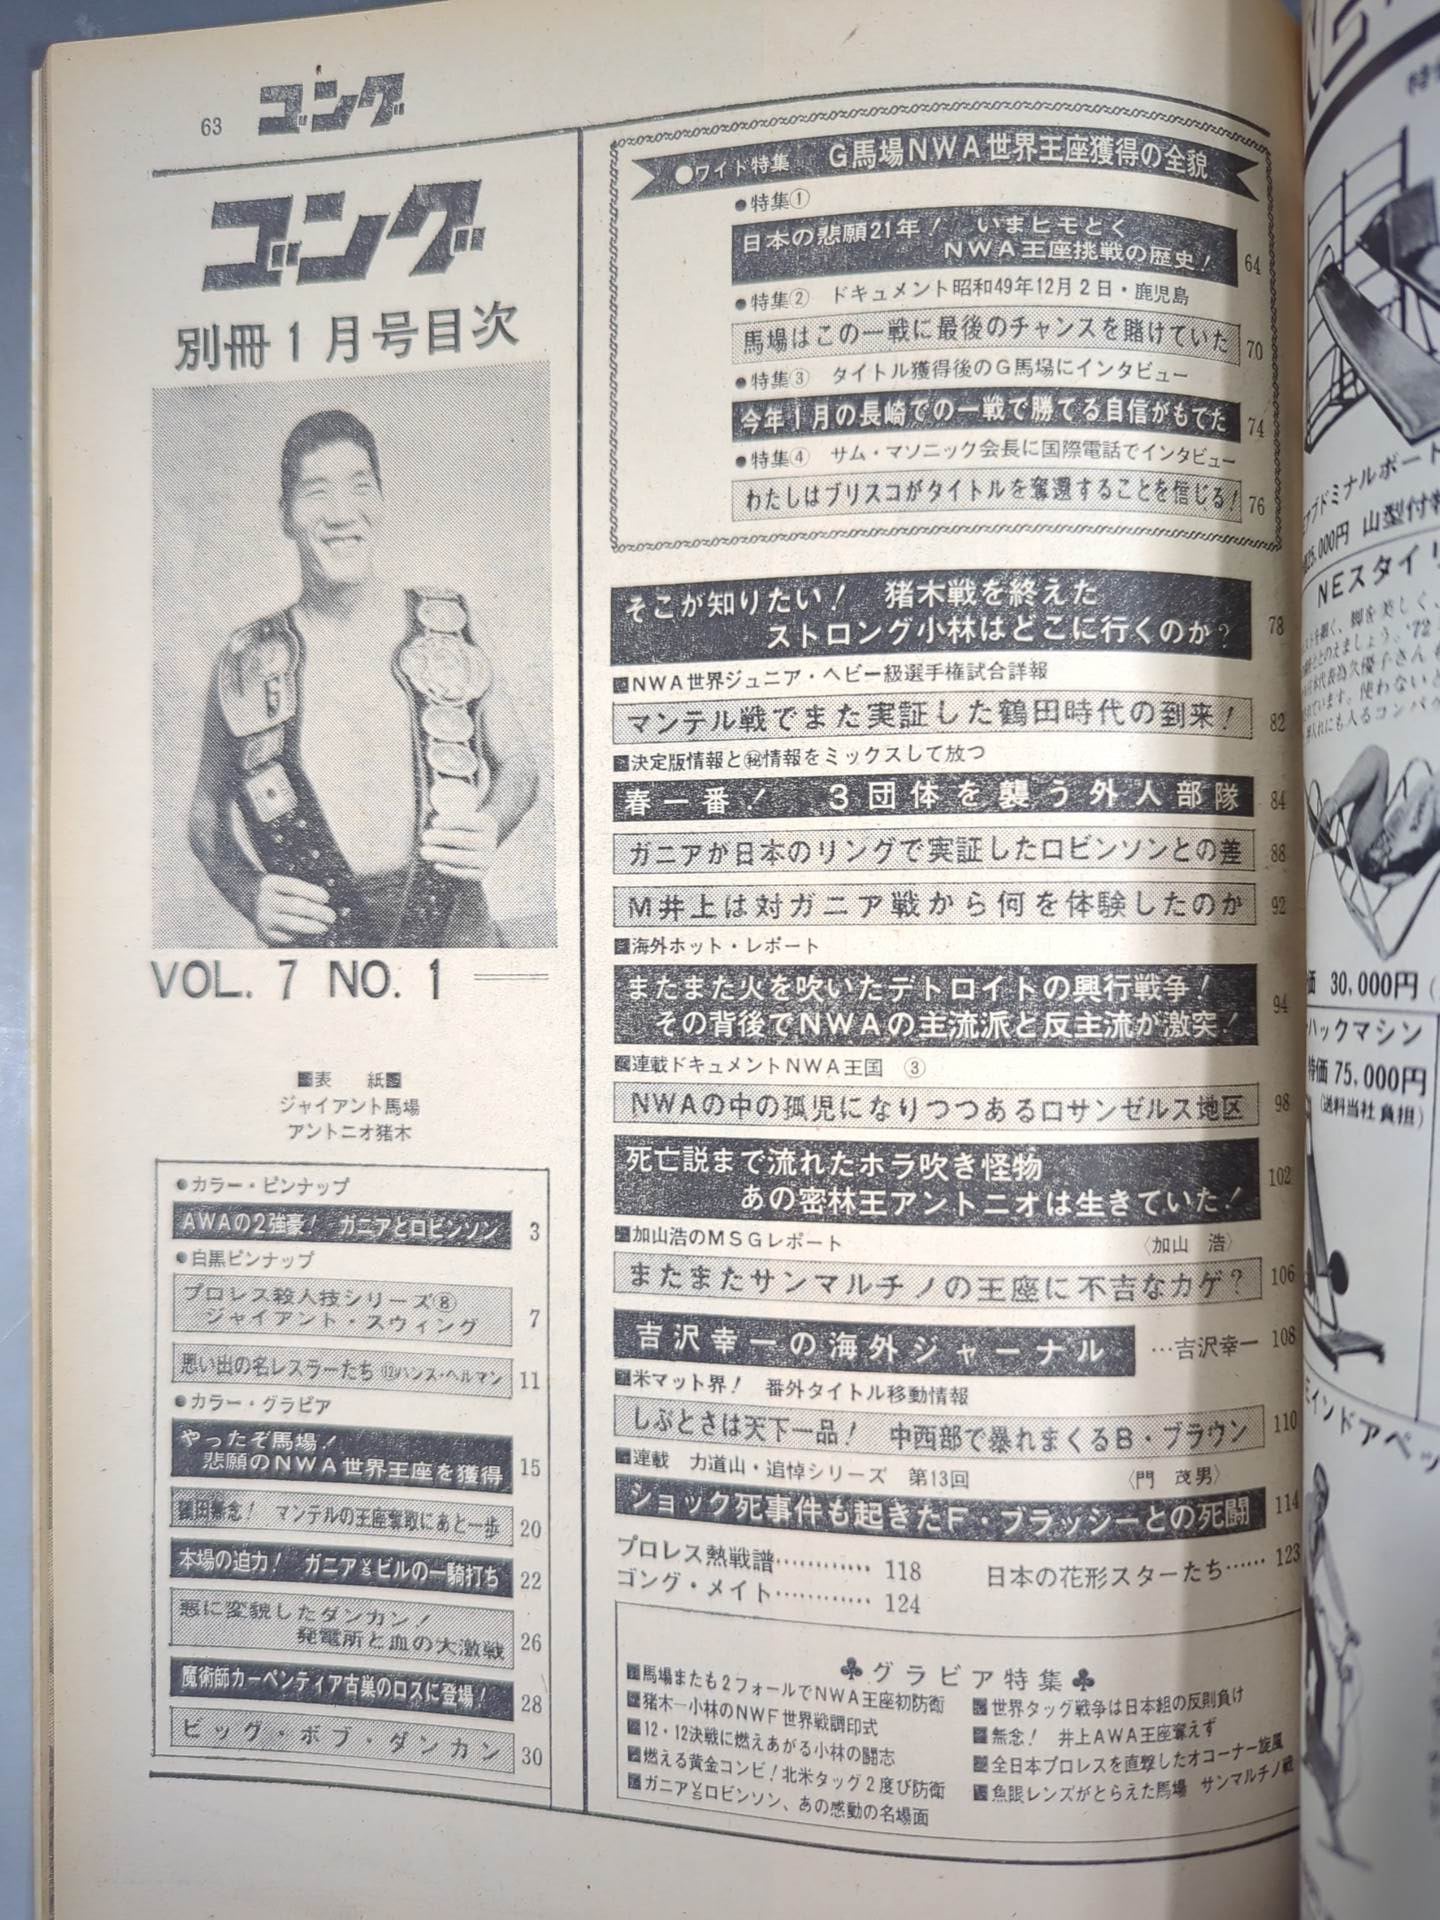 63
ゴング
ゴング
別冊1月号目次
VOL. 7 NO. 1
■表 紙■
ジャイアント馬場
アントニオ猪木
●カラー・ピンナップ
AWAの2強豪! ガニアとロビンソン 3
●白黒ピンナップ
プロレス殺人技シリーズ⑧
ジャイアント・スウィング 7
思い出の名レスラーたち ⑫ハンス・ヘルマン 11
●カラー・グラビア
やったぞ馬場!
悲願のNWA世界王座を獲得 15
鶴田無念! マンテルの王座奪取にあと一歩 20
本場の迫力! ガニアVSビルの一騎打ち 22
悪に変貌したダンカン!
発電所と血の大激戦 26
魔術師カーペンティア古巣のロスに登場! 28
ビッグ・ボブ・ダンカン 30
●ワイド特集 G馬場NWA世界王座獲得の全貌
●特集①
日本の悲願21年! いまヒモとく
NWA王座挑戦の歴史! 64
●特集② ドキュメント昭和49年12月2日・鹿児島
馬場はこの一戦に最後のチャンスを賭けていた 70
●特集③ タイトル獲得後のG馬場にインタビュー
今年1月の長崎での一戦で勝てる自信がもてた 74
●特集④ サム・マソニック会長に国際電話でインタビュー
わたしはブリスコがタイトルを奪還することを信じる! 76
そこが知りたい! 猪木戦を終えた
ストロング小林はどこに行くのか? 78
■NWA世界ジュニア・ヘビー級選手権試合詳報
マンテル戦でまた実証した鶴田時代の到来! 82
■決定版情報と㊙情報をミックスして放つ
春一番! 3団体を襲う外人部隊 84
ガニアが日本のリングで実証したロビンソンとの差 88
M井上は対ガニア戦から何を体験したのか 92
■海外ホット・レポート
またまた火を吹いたデトロイトの興行戦争!
その背後でNWAの主流派と反主流が激突! 94
■連載ドキュメントNWA王国 ③
NWAの中の孤児になりつつあるロサンゼルス地区 98
死亡説まで流れたホラ吹き怪物
あの密林王アントニオは生きていた! 102
■加山浩のMSGレポート 〈加山 浩〉
またまたサンマルチノの王座に不吉なカゲ? 106
吉沢幸一の海外ジャーナル …吉沢幸一 108
■米マット界! 番外タイトル移動情報
しぶとさは天下一品! 中西部で暴れまくるB・ブラウン 110
■連載 力道山・追悼シリーズ 第13回 〈門 茂男〉
ショック死事件も起きたF・ブラッシーとの死闘 114
プロレス熱戦譜………… 118
日本の花形スターたち…… 123
ゴング・メイト………… 124
♣グラビア特集♣
■馬場またも2フォールでNWA王座初防衛
■猪木―小林のNWF世界戦調印式
■12・12決戦に燃えあがる小林の闘志
■燃える黄金コンビ!北米タッグ2度び防衛
■ガニアVSロビンソン、あの感動の名場面
■世界タッグ戦争は日本組の反則負け
■無念! 井上AWA王座奪えず
■全日本プロレスを直撃したオコーナー旋風
■魚眼レンズがとらえた馬場 サンマルチノ戦
アブドミナルボート
25,000円 山型付
NEスタイリ
30,000円
ハックマシン
特価 75,000円
(送料当社負担)
インドアペッ